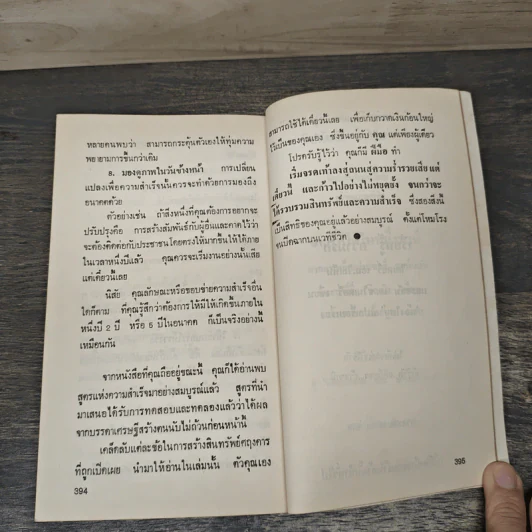 หลายคนพบว่า สามารถกระตุ้นตัวเองให้ทุ่มความ
พยายามการขึ้นกว่าเดิม
8. มองดูภาพในวันข้างหน้า การเปลี่ยน
แปลงเพื่อความสำเร็จนั้นควรจะทำด้วยการมองถึง
อนาคตด้วย
ตัวอย่างเช่น ถ้าสิ่งหนึ่งที่คุณต้องการอยากจะ
ปรับปรุงคือ การสร้างสัมพันธ์กับผู้อื่นและคาดไว้ว่า
จะต้องติดต่อกับประชาชนโดยตรงให้มากขึ้นให้ได้ภาย
ในเวลาหนึ่งปีแล้ว คุณควรจะเริ่มงานอย่างนั้นเสีย
แต่เดี๋ยวนี้เลย
นิสัย คุณลักษณะหรือขอบข่ายความสำเร็จอื่น
ใดก็ตาม ที่คุณรู้สึกว่าต้องการให้มีให้เกิดขึ้นภายใน
หนึ่งปี 2 ปี หรือ 5 ปีในอนาคต ก็เป็นจริงอย่างนี้
เหมือนกัน
จากหนังสือที่คุณถืออยู่ขณะนี้ คุณก็ได้อ่านพบ
สูตรแห่งความสำเร็จมาอย่างสมบูรณ์แล้ว สูตรที่นำ
มาเสนอได้รับการทดสอบและทดลองแล้วว่าได้ผล
จากบรรดาเศรษฐีสร้างตนนับไม่ถ้วนก่อนหน้านี้
เคล็ดลับแต่ละข้อในการสร้างสินทรัพย์ศฤงคาร
ที่ถูกเปิดเผย นำมาให้อ่านในเล่มนั้น ตัวคุณเอง
394
สามารถใช้ได้เดี๋ยวนี้เลย เพื่อเก็บกวาดเงินก้อนใหญ่
ไว้เป็นของคุณเอง ซึ่งขึ้นอยู่กับ คุณ แต่เพียงผู้เดียว
โปรดรับรู้ไว้ว่า คุณก็มี ฝีมือ ทำ
เริ่มจรดเท้าลงสู่ถนนสู่ความร่ำรวยเสีย แต่
เดี๋ยวนี้ และก้าวไปอย่างไม่หยุดยั้ง จนกว่าจะ
ได้รวบรวมสินทรัพย์และความสำเร็จ ซึ่งสองสิ่งนี้
เป็นสิทธิของคุณอยู่แล้วอย่างสมบูรณ์ ตั้งแต่โหมโรง
จนปิดฉากบนเวทีชีวิต ●
395